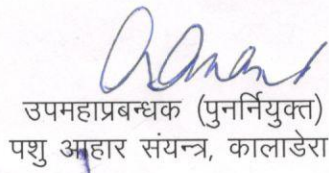 उपमहाप्रबन्धक (पुनर्नियुक्त)
पशु आहार संयन्त्र, कालाडेरा